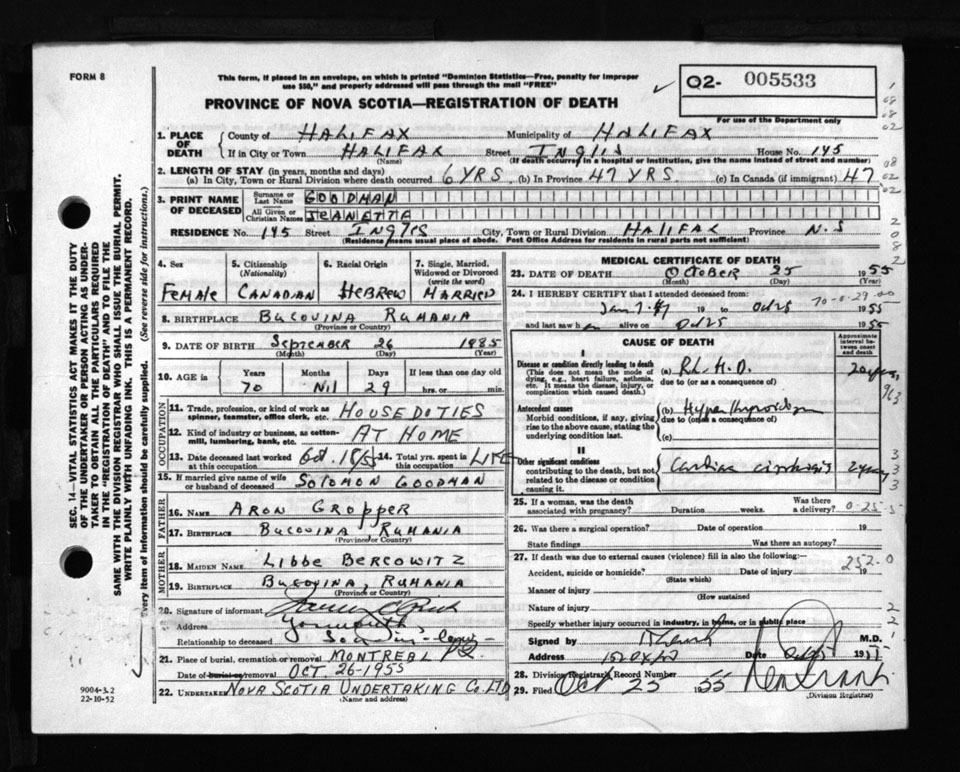 FORM 8
This form, if placed in an envelope, on which is printed "Dominion Statistics—Free, penalty for improper
use $50," and properly addressed will pass through the mail "FREE"
PROVINCE OF NOVA SCOTIA—REGISTRATION OF DEATH
02- 005533
For use of the Department only
1. PLACE OF DEATH
County of HALIFAX Municipality of HALIFAX
If in City or Town HALIFAX Street INGLIS House No. 145
(Name) (If death occurred in a hospital or institution, give the name instead of street and number)
2. LENGTH OF STAY (in years, months and days)
(a) In City, Town or Rural Division where death occurred 6 YRS. (b) In Province 47 YRS. (c) In Canada (if immigrant) 47
3. PRINT NAME OF DECEASED
Surname or Last Name GOODMAN
All Given or Christian Names JEANETTE
RESIDENCE No. 145 Street INGLIS City, Town or Rural Division HALIFAX Province N.S
(Residence means usual place of abode. Post Office Address for residents in rural parts not sufficient)
4. Sex 5. Citizenship (Nationality) 6. Racial Origin 7. Single, Married, Widowed or Divorced (write the word)
FEMALE CANADIAN HEBREW MARRIED
8. BIRTHPLACE BUCOVINA RUMANIA
(Province or Country)
9. DATE OF BIRTH SEPTEMBER 26 1885
(Month) (Day) (Year)
10. AGE in Years Months Days If less than one day old
70 Nil 29 hrs. or min.
OCCUPATION
11. Trade, profession, or kind of work as spinner, teamster, office clerk, etc. HOUSE DUTIES
12. Kind of industry or business, as cotton-mill, lumbering, bank, etc. AT HOME
13. Date deceased last worked at this occupation Oct. 18/55 14. Total yrs. spent in this occupation LIFE
15. If married give name of wife or husband of deceased SOLOMON GOODMAN
FATHER
16. NAME ARON GROPPER
17. BIRTHPLACE BUCOVINA RUMANIA
(Province or Country)
MOTHER
18. MAIDEN NAME LIBBE BERCOWITZ
19. BIRTHPLACE BUCOVINA, RUMANIA
(Province or Country)
20. Signature of informant
Address Yarmouth
Relationship to deceased Son-in-law
21. Place of burial, cremation or removal MONTREAL P.Q.
Date of burial or removal OCT. 26-1955
22. UNDERTAKER NOVA SCOTIA UNDERTAKING CO. LTD
(Name and Address)
MEDICAL CERTIFICATE OF DEATH
23. DATE OF DEATH OCTOBER 25 1955
(Month) (Day)
24. I HEREBY CERTIFY that I attended deceased from
19 to Oct 25 1955
and last saw her alive on Oct 25 1955
CAUSE OF DEATH
Approximate interval between onset and death
I
Disease or condition directly leading to death
(This does not mean the mode of dying, e.g., heart failure, asthenia, etc. It means the disease, injury, or complication which caused death.)
(a) Rh. H. D.
due to (or as a consequence of)
Antecedent causes
Morbid conditions, if any, giving rise to the above cause, stating the underlying condition last.
(b) Hyperthyroidism
due to (or as a consequence of)
(c)
II
Other significant conditions
contributing to the death, but not related to the disease or condition causing it.
Cardiac cirrhosis 2 years
25. If a woman, was the death associated with pregnancy? Duration weeks. Was there a delivery?
26. Was there a surgical operation? Date of operation 19
State findings Was there an autopsy?
27. If death was due to external causes (violence) fill in also the following:—
Accident, suicide or homicide? Date of injury 19
(State which)
252.0
Manner of injury
(How sustained)
Nature of injury
Specify whether injury occurred in industry, in home, or in public place
Signed by M.D.
Address Date 1955
28. Division Registrar's Record Number
29. Filed Oct 25 1955
(Division Registrar)
SEC. 14—VITAL STATISTICS ACT MAKES IT THE DUTY
OF THE UNDERTAKER OR PERSON ACTING AS UNDER-
TAKER TO OBTAIN ALL THE PARTICULARS REQUIRED
IN THE "REGISTRATION OF DEATH" AND TO FILE THE
SAME WITH THE DIVISION REGISTRAR WHO SHALL ISSUE THE BURIAL PERMIT.
WRITE PLAINLY WITH UNFADING INK. THIS IS A PERMANENT RECORD.
Every item of information should be carefully supplied. (See reverse side for instructions.)
9004-3.2
22-10-52